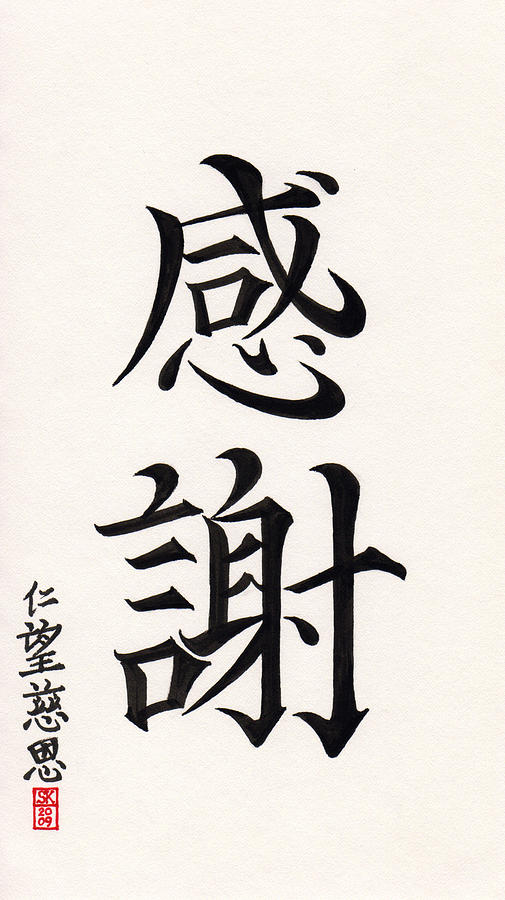 感謝
仁望慈恩
SK
20
09